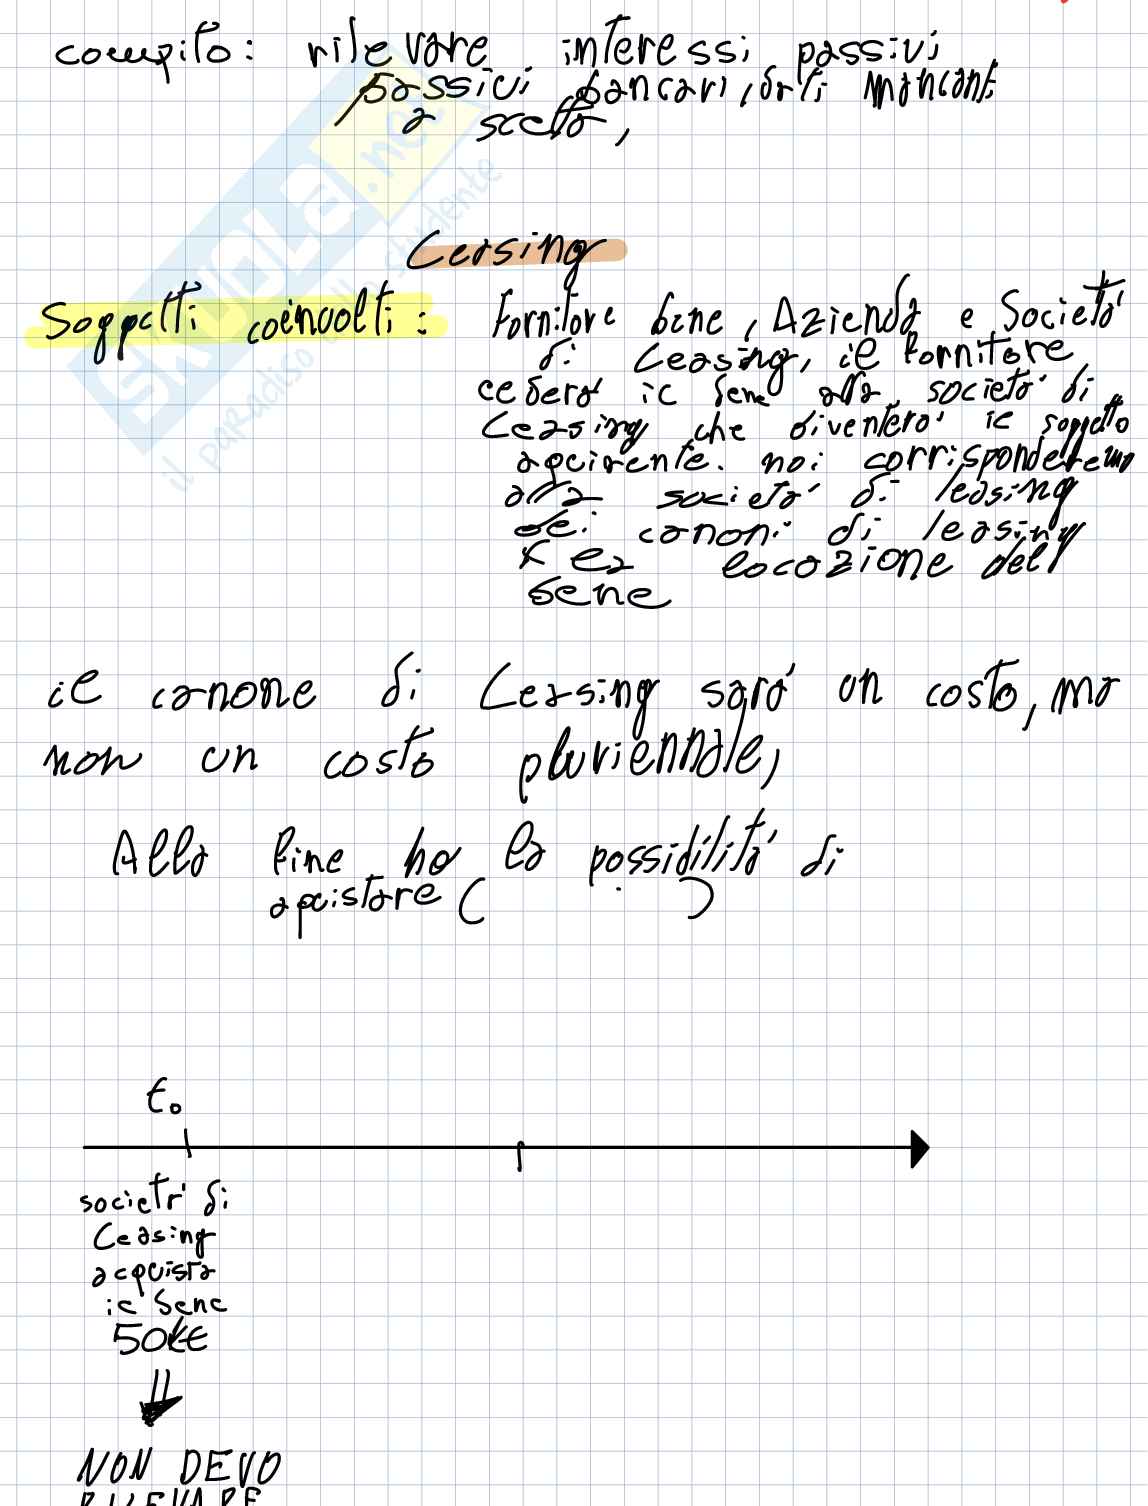 compito: rilevare interessi passivi
passivi bancari, dati mancanti
a scelta,
SKUOLA.net
il paradiso dello studente
Leasing
Soggetti coinvolti: Fornitore bene, Azienda e Società
di Leasing, il fornitore
cederà il bene alla società di
Leasing che diventerà il soggetto
acquirente. noi corrisponderemo
alla società di leasing
dei canoni di leasing
x la locazione del
bene
il canone di Leasing sarà un costo, ma
non un costo pluriennale,
Alla fine ho la possibilità di
acquistare ( )
t₀
società di
Leasing
acquista
il bene
50k€
NON DEVO
RILEVARE